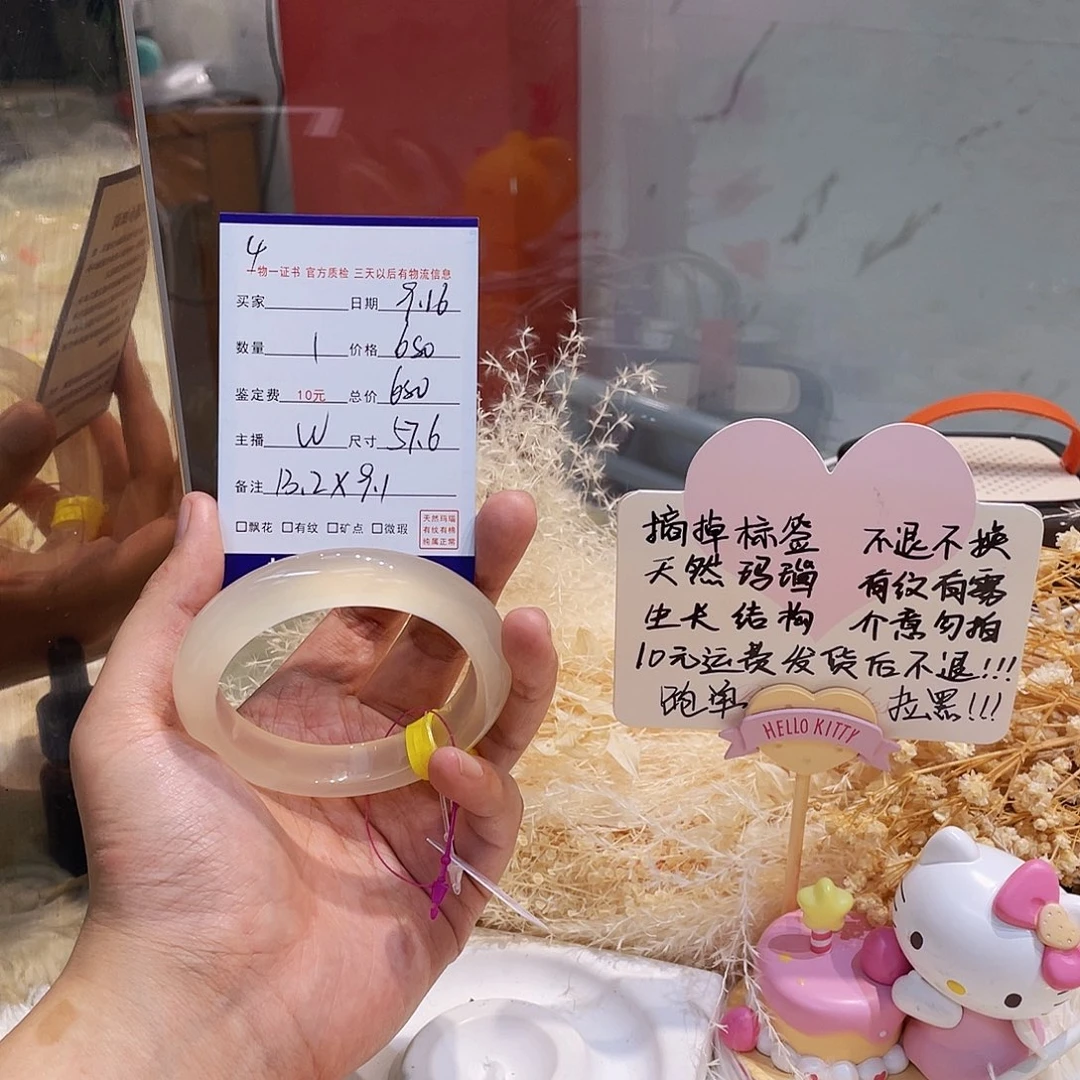 4
一物一证书 官方质检 三天以后有物流信息
买家 日期 9.16
数量 1 价格 650
鉴定费 10元 总价 650
主播 W 尺寸 57.6
备注 13.2X9.1
□飘花 □有纹 □矿点 □微瑕
天然玛瑙
有纹有棉
纯属正常
摘掉标签 不退不换
天然玛瑙 有纹有雾
生长结构 介意勿拍
10元运费发货后不退!!!
跑单 拉黑!!!
HELLO KITTY